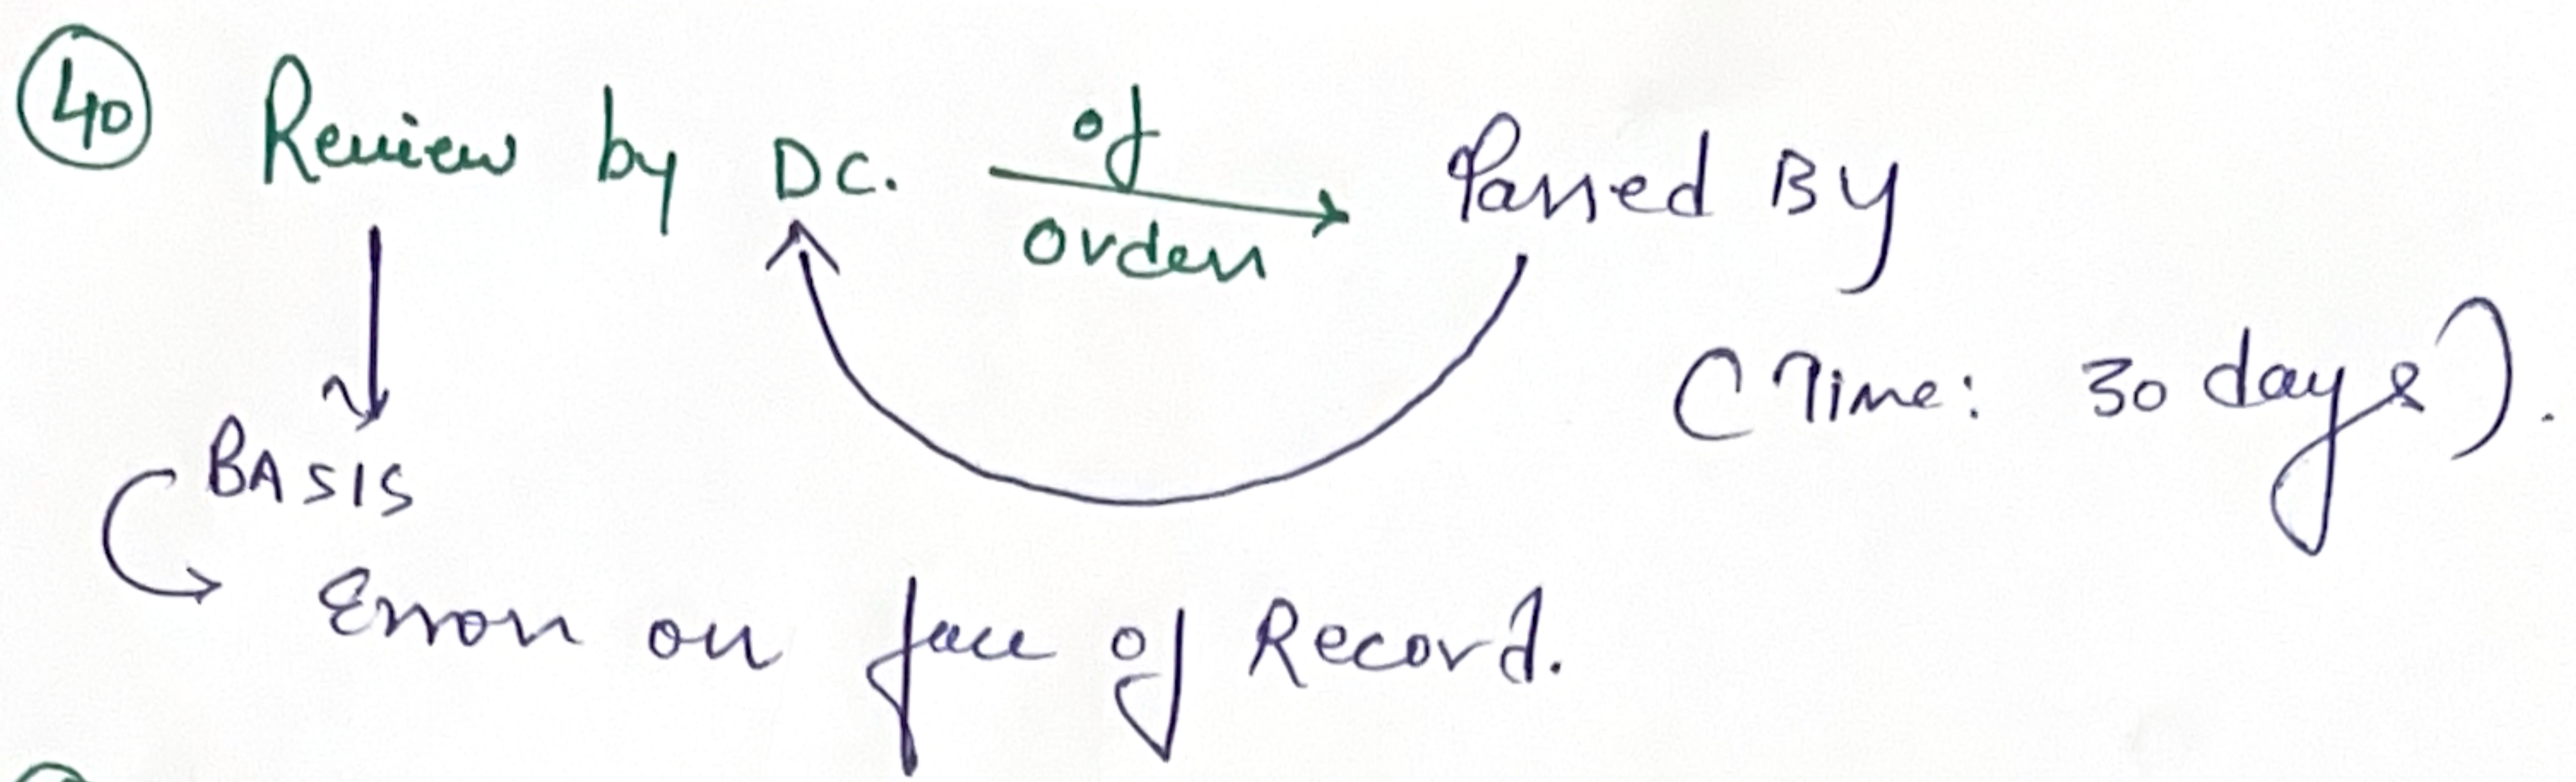 40 Review by DC. of Order Passed By
(Time: 30 days).
BASIS
Error on face of Record.